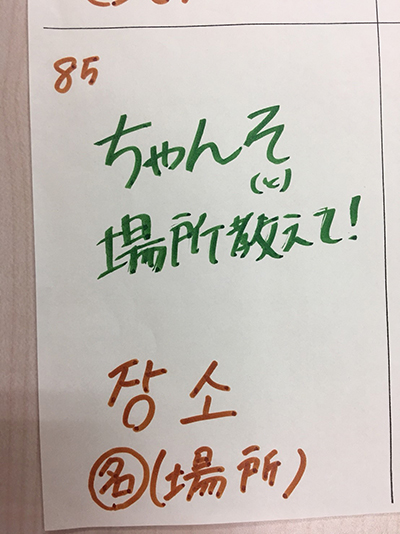 85
ちゃんそ
(と)
場所散えて!
장소
名(場所)